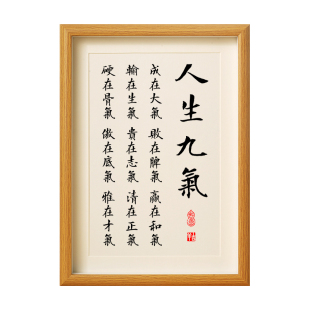 人生九氣
成在大氣 敗在脾氣 贏在和氣
輸在生氣 貴在志氣 清在正氣
硬在骨氣 傲在底氣 雅在才氣